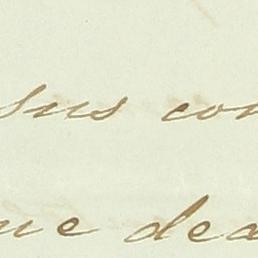 sus con
ue dea